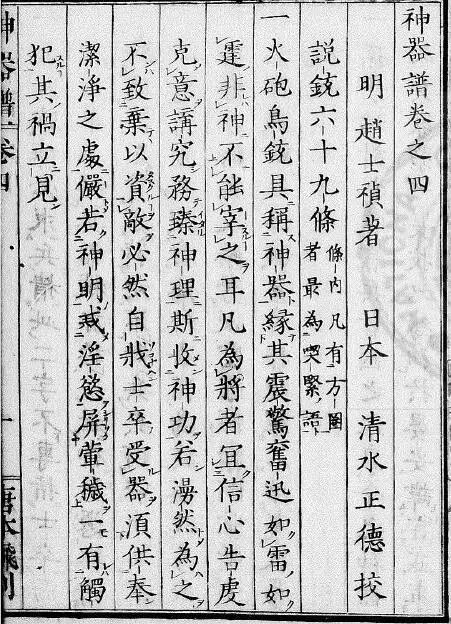 神器譜卷之四
明 趙士禎著 日本 清水正德挍
說銃六十九條 條內凡有方圈
者最為喫緊語
一火砲鳥銃具稱神器緣其震驚奮迅如雷如
霆非神不能宰之耳凡為將者宜信心告虔
克意講究務臻神理斯收神功若漫然為之
不致棄以資敵必然自戕士卒受器須供奉
潔淨之處儼若神明戒淫慾屏葷穢一有觸
犯其禍立見
神器譜 卷四 一